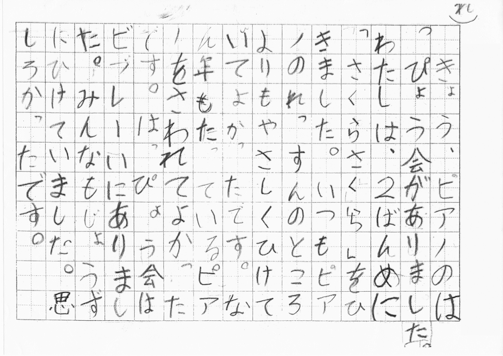 きょう、ピアノのは
っぴょう会がありました。
わたしは、2ばんめに
「さくらさくら」をひ
きました。いつもピア
ノのれっすんのところ
よりもやさしくひけて
いてよかったです。な
ん年もたっているピア
ノをさわれてよかった
です。はっぴょう会は
ビブレーいにありまし
た。みんなもじょうず
にひけていました。思
しろかったです。